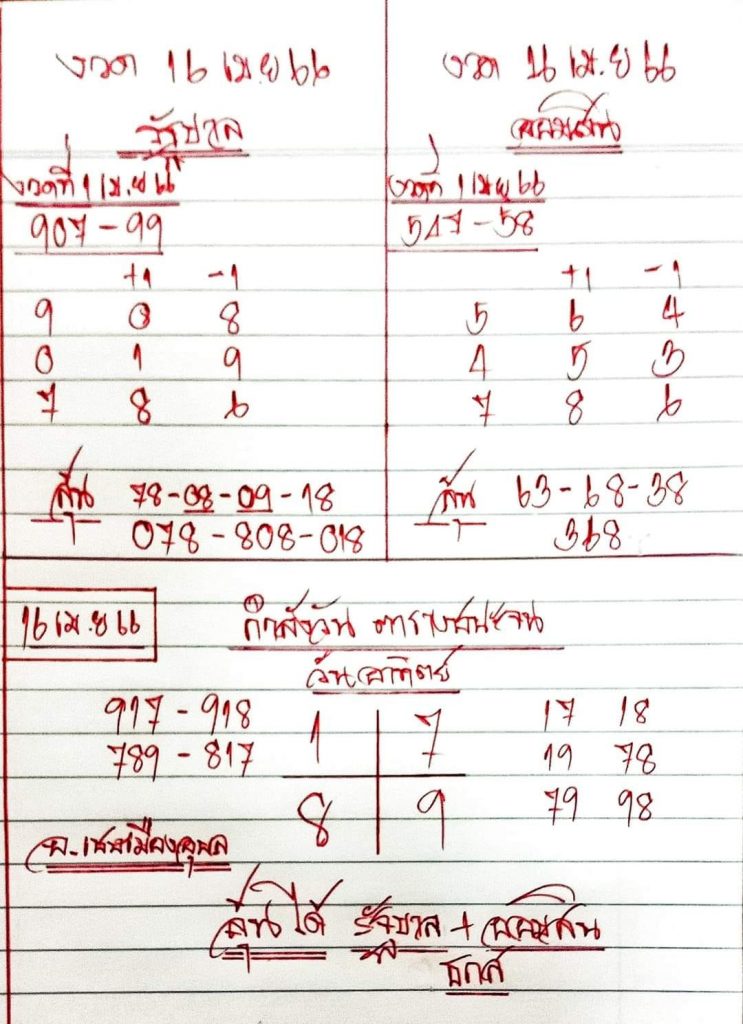 งวด 16 เม.ย 66
รัฐบาล
งวดที่ 1 เม.ย 66
907 - 99
+1 -1
9 0 8
0 1 9
7 8 6
ลุ้น 78-08-09-18
078-808-018
งวด 16 เม.ย 66
ออมสิน
งวดที่ 1 เม.ย 66
547-58
+1 -1
5 6 4
4 5 3
7 8 6
ลุ้น 63-68-38
368
16 เม.ย 66
กำลังวัน ตารางชนะจน
วันอาทิตย์
917 - 918
789 - 817
1 7
8 9
17 18
19 78
79 98
ลุ้นได้ รัฐบาล + ออมสิน
ธกส